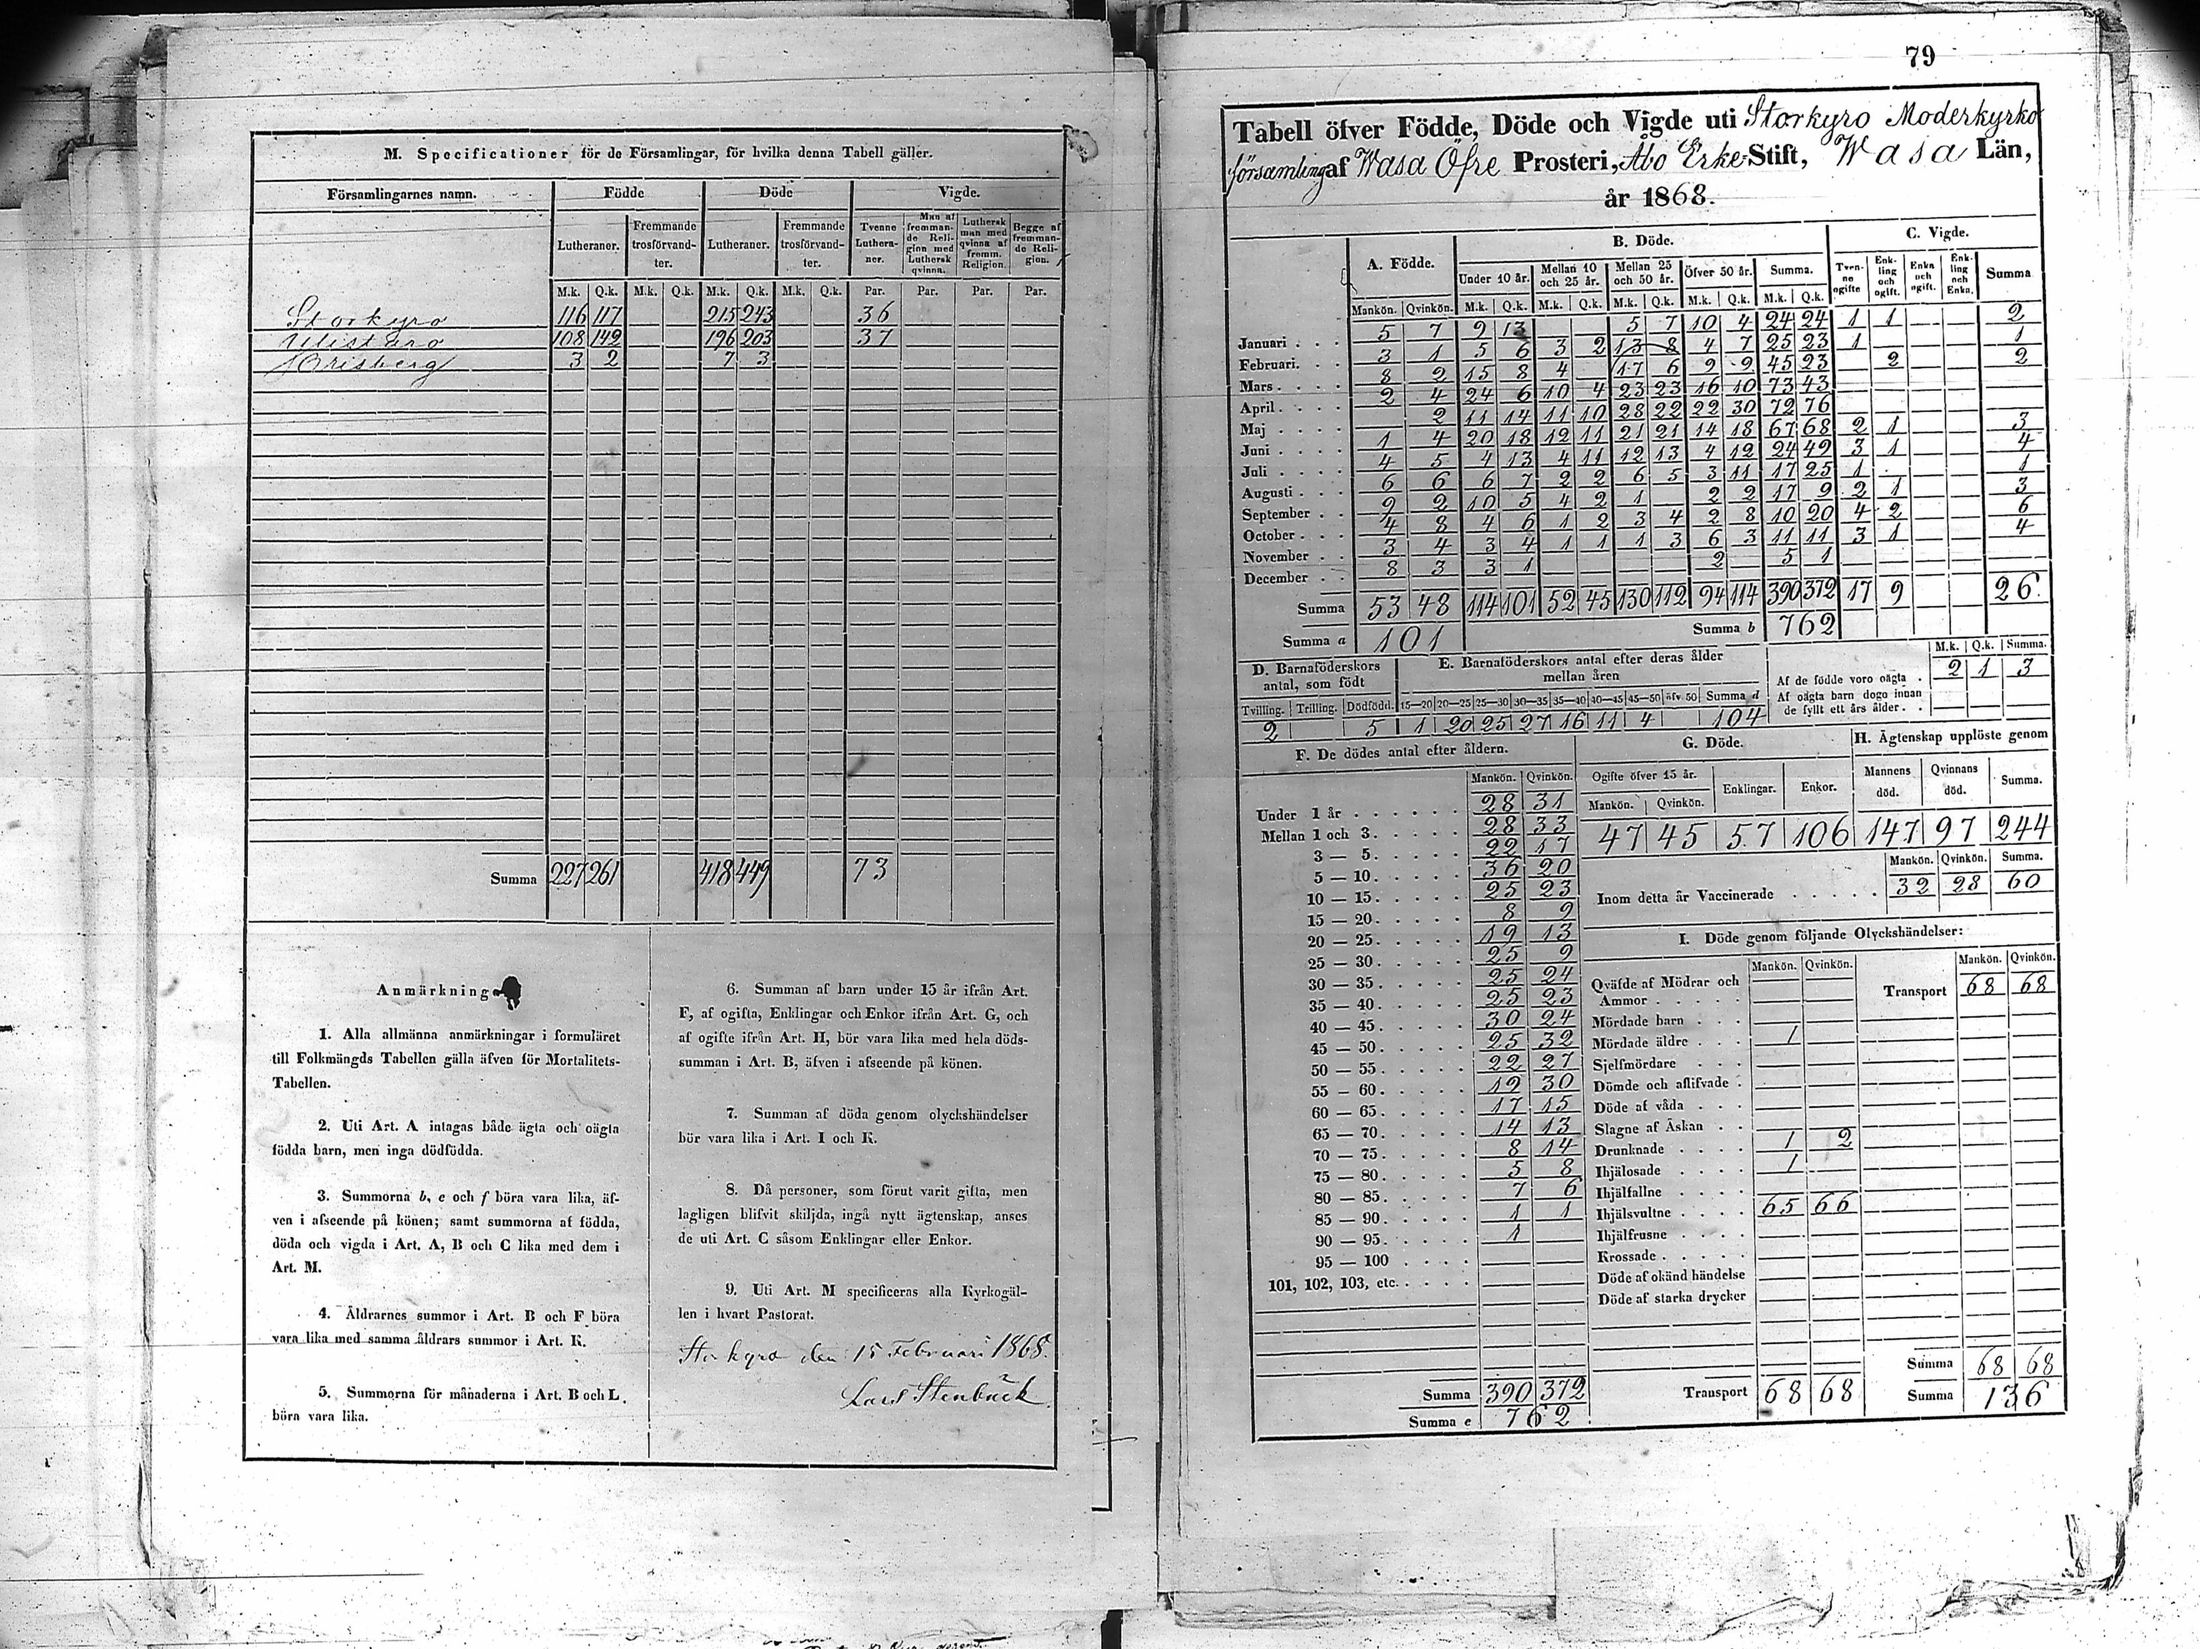 M. Specificationer för de Församlingar, för hvilka denna Tabell gäller.
Församlingarnes namn. Födde Döde Vigde.
Lutheraner. Fremmande trosförvandter. Lutheraner. Fremmande trosförvandter. Tvenne Lutheraner. Man af fremmande Religion med Luthersk qvinna. Luthersk man med qvinna af fremm. Religion. Begge af fremmande Religion.
M.k. Q.k. M.k. Q.k. M.k. Q.k. M.k. Q.k. Par. Par. Par. Par.
Storkyro 116 117 215 243 36
108 142 196 203 37
3 2 7 3
Summa 227 261 418 449 73
Anmärkning
1. Alla allmänna anmärkningar i formuläret
till Folkmängds Tabellen gälla äfven för Mortalitets-
Tabellen.
2. Uti Art. A intagas både ägta och oägta
födda barn, men inga dödfödda.
3. Summorna b, e och f böra vara lika, äf-
ven i afseende på könen; samt summorna af födda,
döda och vigda i Art. A, B och C lika med dem i
Art. M.
4. Åldrarnes summor i Art. B och F böra
vara lika med samma åldrars summor i Art. K.
5. Summorna för månaderna i Art. B och L
böra vara lika.
6. Summan af barn under 15 år ifrån Art.
F, af ogifta, Enklingar och Enkor ifrån Art. G, och
af ogifte ifrån Art. H, bör vara lika med hela döds-
summan i Art. B, äfven i afseende på könen.
7. Summan af döda genom olyckshändelser
bör vara lika i Art. I och K.
8. Då personer, som förut varit gifta, men
lagligen blifvit skiljda, ingå nytt ägtenskap, anses
de uti Art. C såsom Enklingar eller Enkor.
9. Uti Art. M specificeras alla Kyrkogäl-
len i hvart Pastorat.
Storkyro den 15 Februari 1868.
Lars Stenbäck
79
Tabell öfver Födde, Döde och Vigde uti Storkyro Moderkyrko
församling af Wasa Öfre Prosteri, Åbo Erke-Stift, Wasa Län,
år 1868.
A. Födde. B. Döde. C. Vigde.
Under 10 år. Mellan 10 och 25 år. Mellan 25 och 50 år. Öfver 50 år. Summa. Tvenne ogifte Enkling och ogift. Enka och ogift. Enkling och Enka. Summa
Mankön. Qvinkön. M.k. Q.k. M.k. Q.k. M.k. Q.k. M.k. Q.k. M.k. Q.k.
Januari 5 7 9 13 5 7 10 4 24 24 1 1 2
Februari. 3 1 5 6 3 2 13 8 4 7 25 23 1 1
Mars 8 2 15 8 4 17 6 9 9 45 23 2 2
April 2 4 24 6 10 4 23 23 16 10 73 43
Maj 2 11 14 11 10 28 22 22 30 72 76
Juni 1 4 20 18 12 11 21 21 14 18 67 68 2 1 3
Juli 4 5 4 13 4 11 12 13 4 12 24 49 3 1 4
Augusti 6 6 6 7 2 2 6 5 3 11 17 25 1 1
September 9 2 10 5 4 2 1 2 2 17 9 2 1 3
October 4 8 4 6 1 2 3 4 2 8 10 20 4 2 6
November 3 4 3 4 1 1 1 3 6 3 11 11 3 1 4
December 8 3 3 1 2 5 1
Summa 53 48 114 101 52 45 130 112 94 114 390 372 17 9 26.
Summa a 101 Summa b 762
D. Barnaföderskors antal, som född
Tvilling. Trilling. Dödfödd.
2 5
E. Barnaföderskors antal efter deras ålder mellan åren
15—20 20—25 25—30 30—35 35—40 40—45 45—50 öfv. 50 Summa d
1 20 25 27 16 11 4 104
M.k. Q.k. Summa.
Af de födde voro oägta 2 1 3
Af oägta barn dogo innan
de fyllt ett års ålder
F. De dödes antal efter åldern.
Mankön. Qvinkön.
Under 1 år 28 31
Mellan 1 och 3 28 33
3 — 5 22 17
5 — 10 36 20
10 — 15 25 23
15 — 20 8 9
20 — 25 19 13
25 — 30 25 9
30 — 35 25 24
35 — 40 25 23
40 — 45 30 24
45 — 50 25 32
50 — 55 22 27
55 — 60 19 30
60 — 65 17 15
65 — 70 14 13
70 — 75 8 14
75 — 80 5 8
80 — 85 7 6
85 — 90 1 1
90 — 95 1
95 — 100
101, 102, 103, etc.
Summa 390 372
Summa e 762
G. Döde.
Ogifte öfver 15 år. Enklingar. Enkor.
Mankön. Qvinkön.
47 45 57 106
H. Ägtenskap upplöste genom
Mannens död. Qvinnans död. Summa.
147 97 244
Mankön. Qvinkön. Summa.
Inom detta år Vaccinerade 32 28 60
I. Döde genom följande Olyckshändelser:
Mankön. Qvinkön. Mankön. Qvinkön.
Qväfde af Mödrar och
Ammor Transport 68 68
Mördade barn
Mördade äldre 1
Sjelfmördare
Dömde och aflifvade
Döde af våda
Slagne af Åskan
Drunknade 1 2
Ihjälosade 1
Ihjälfallne
Ihjälsvultne 65 66
Ihjälfrusne
Krossade
Döde af okänd händelse
Döde af starka drycker
Summa 68 68
Transport 68 68 Summa 136